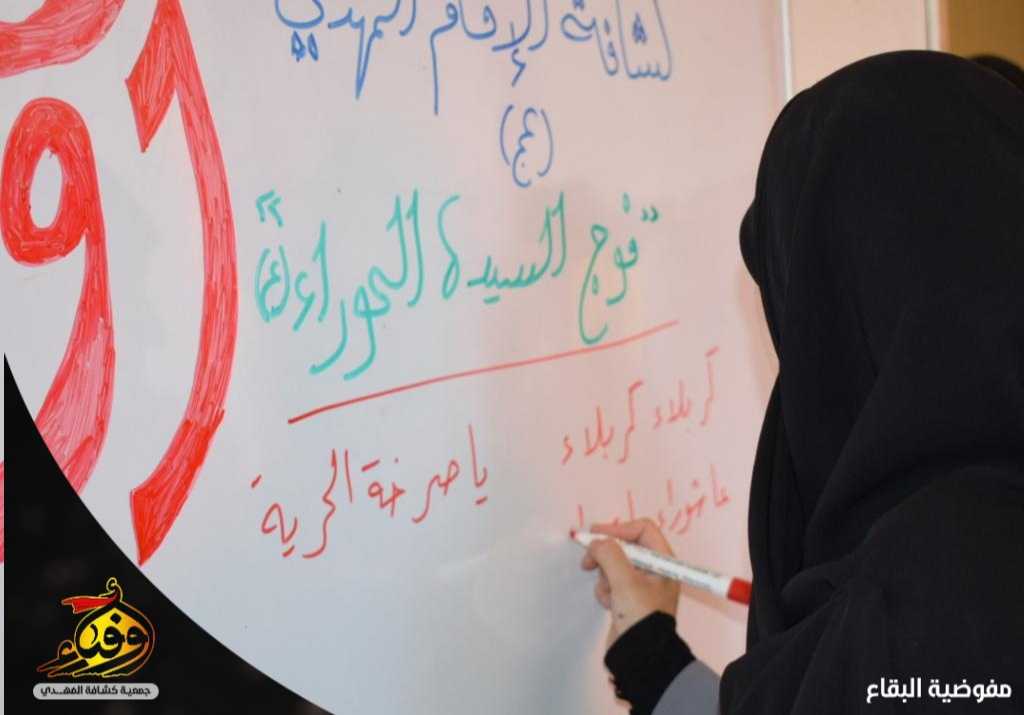 لكشافة الإمام المهدي
(٤)
"فوج السيدة الحوراء (ع)"
كربلاء كربلاء
يا صرخة الحرية
عاشوراء
أوفياء
جمعية كشافة المهدي
مفوضية البقاع